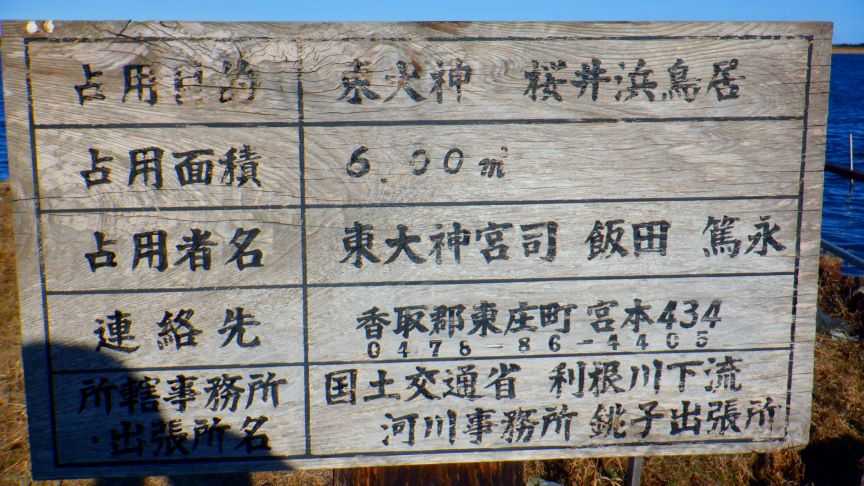 占用目的 東大神 桜井浜鳥居
占用面積 6.00㎡
占用者名 東大神宮司 飯田 篤永
連絡先 香取郡東庄町宮本434
0478-86-4405
所轄事務所 国土交通省 利根川下流
・出張所名 河川事務所 銚子出張所